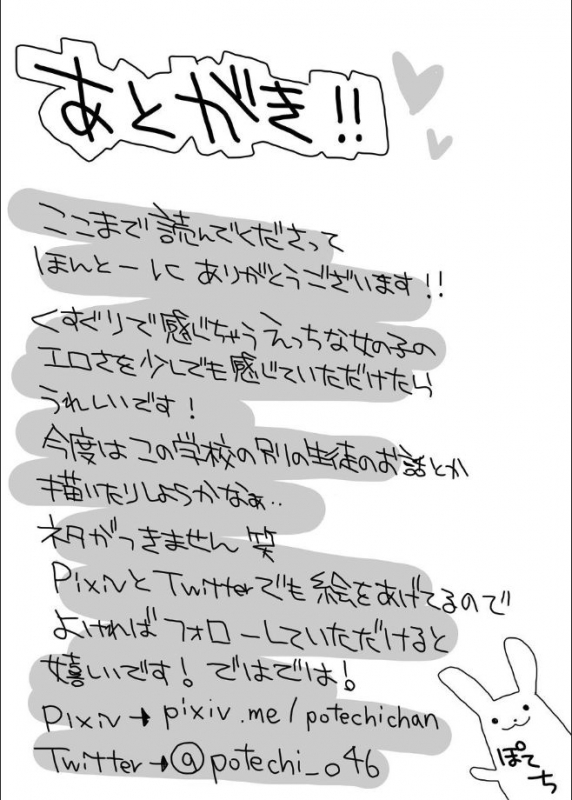 あとがき!!
ここまで読んでくださって
ほんとーにありがとうございます!!
くすぐりで感じちゃうえっちな女の子の
エロさを少しでも感じていただけたら
うれしいです!
今度はこの学校の別の生徒のお話とか
描いたりしようかなぁ..
ネタがつきません 笑
PixivとTwitterでも絵をあげてるので
よければフォローしていただけると
嬉しいです! ではでは!
Pixiv→pixiv.me/potechichan
Twitter→@potechi_046
ぽてち